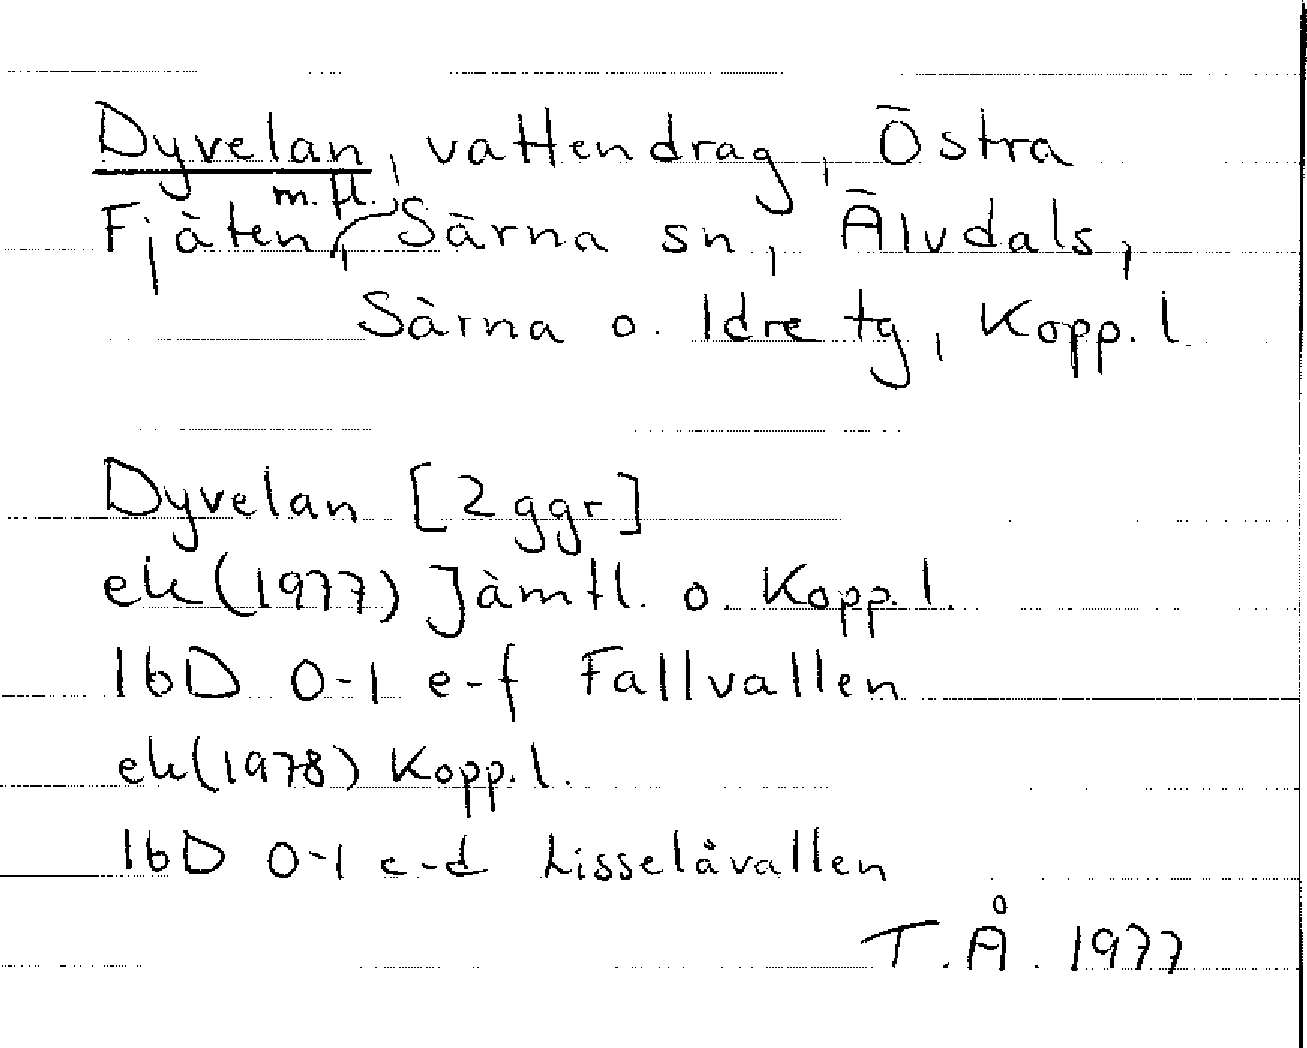 Dyvelan, vattendrag, Östra
Fjäten m.fl., Särna sn, Älvdals,
Särna o. Idre tg, Kopp. l.
Dyvelan [2 ggr]
ek (1977) Jämtl. o. Kopp. l.
16D 0-1 e-f Fallvallen
ek (1978) Kopp. l.
16D 0-1 c-d Lisselåvallen
T.Å. 1977